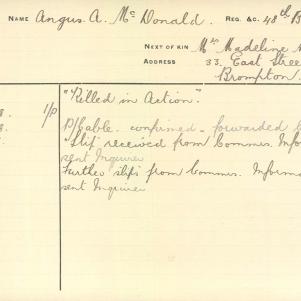 NAME Angus A. McDonald. REG. &C. 48th B
NEXT OF KIN Mrs Madeline
ADDRESS 33, East Stree
Brompton.
"Killed in Action".
8. 1/P
P/Cable. confirmed - forwarded
8. Slip received from Commr. Infor
sent Inquirer
Further slips from Commr. Informa
sent Inquirer